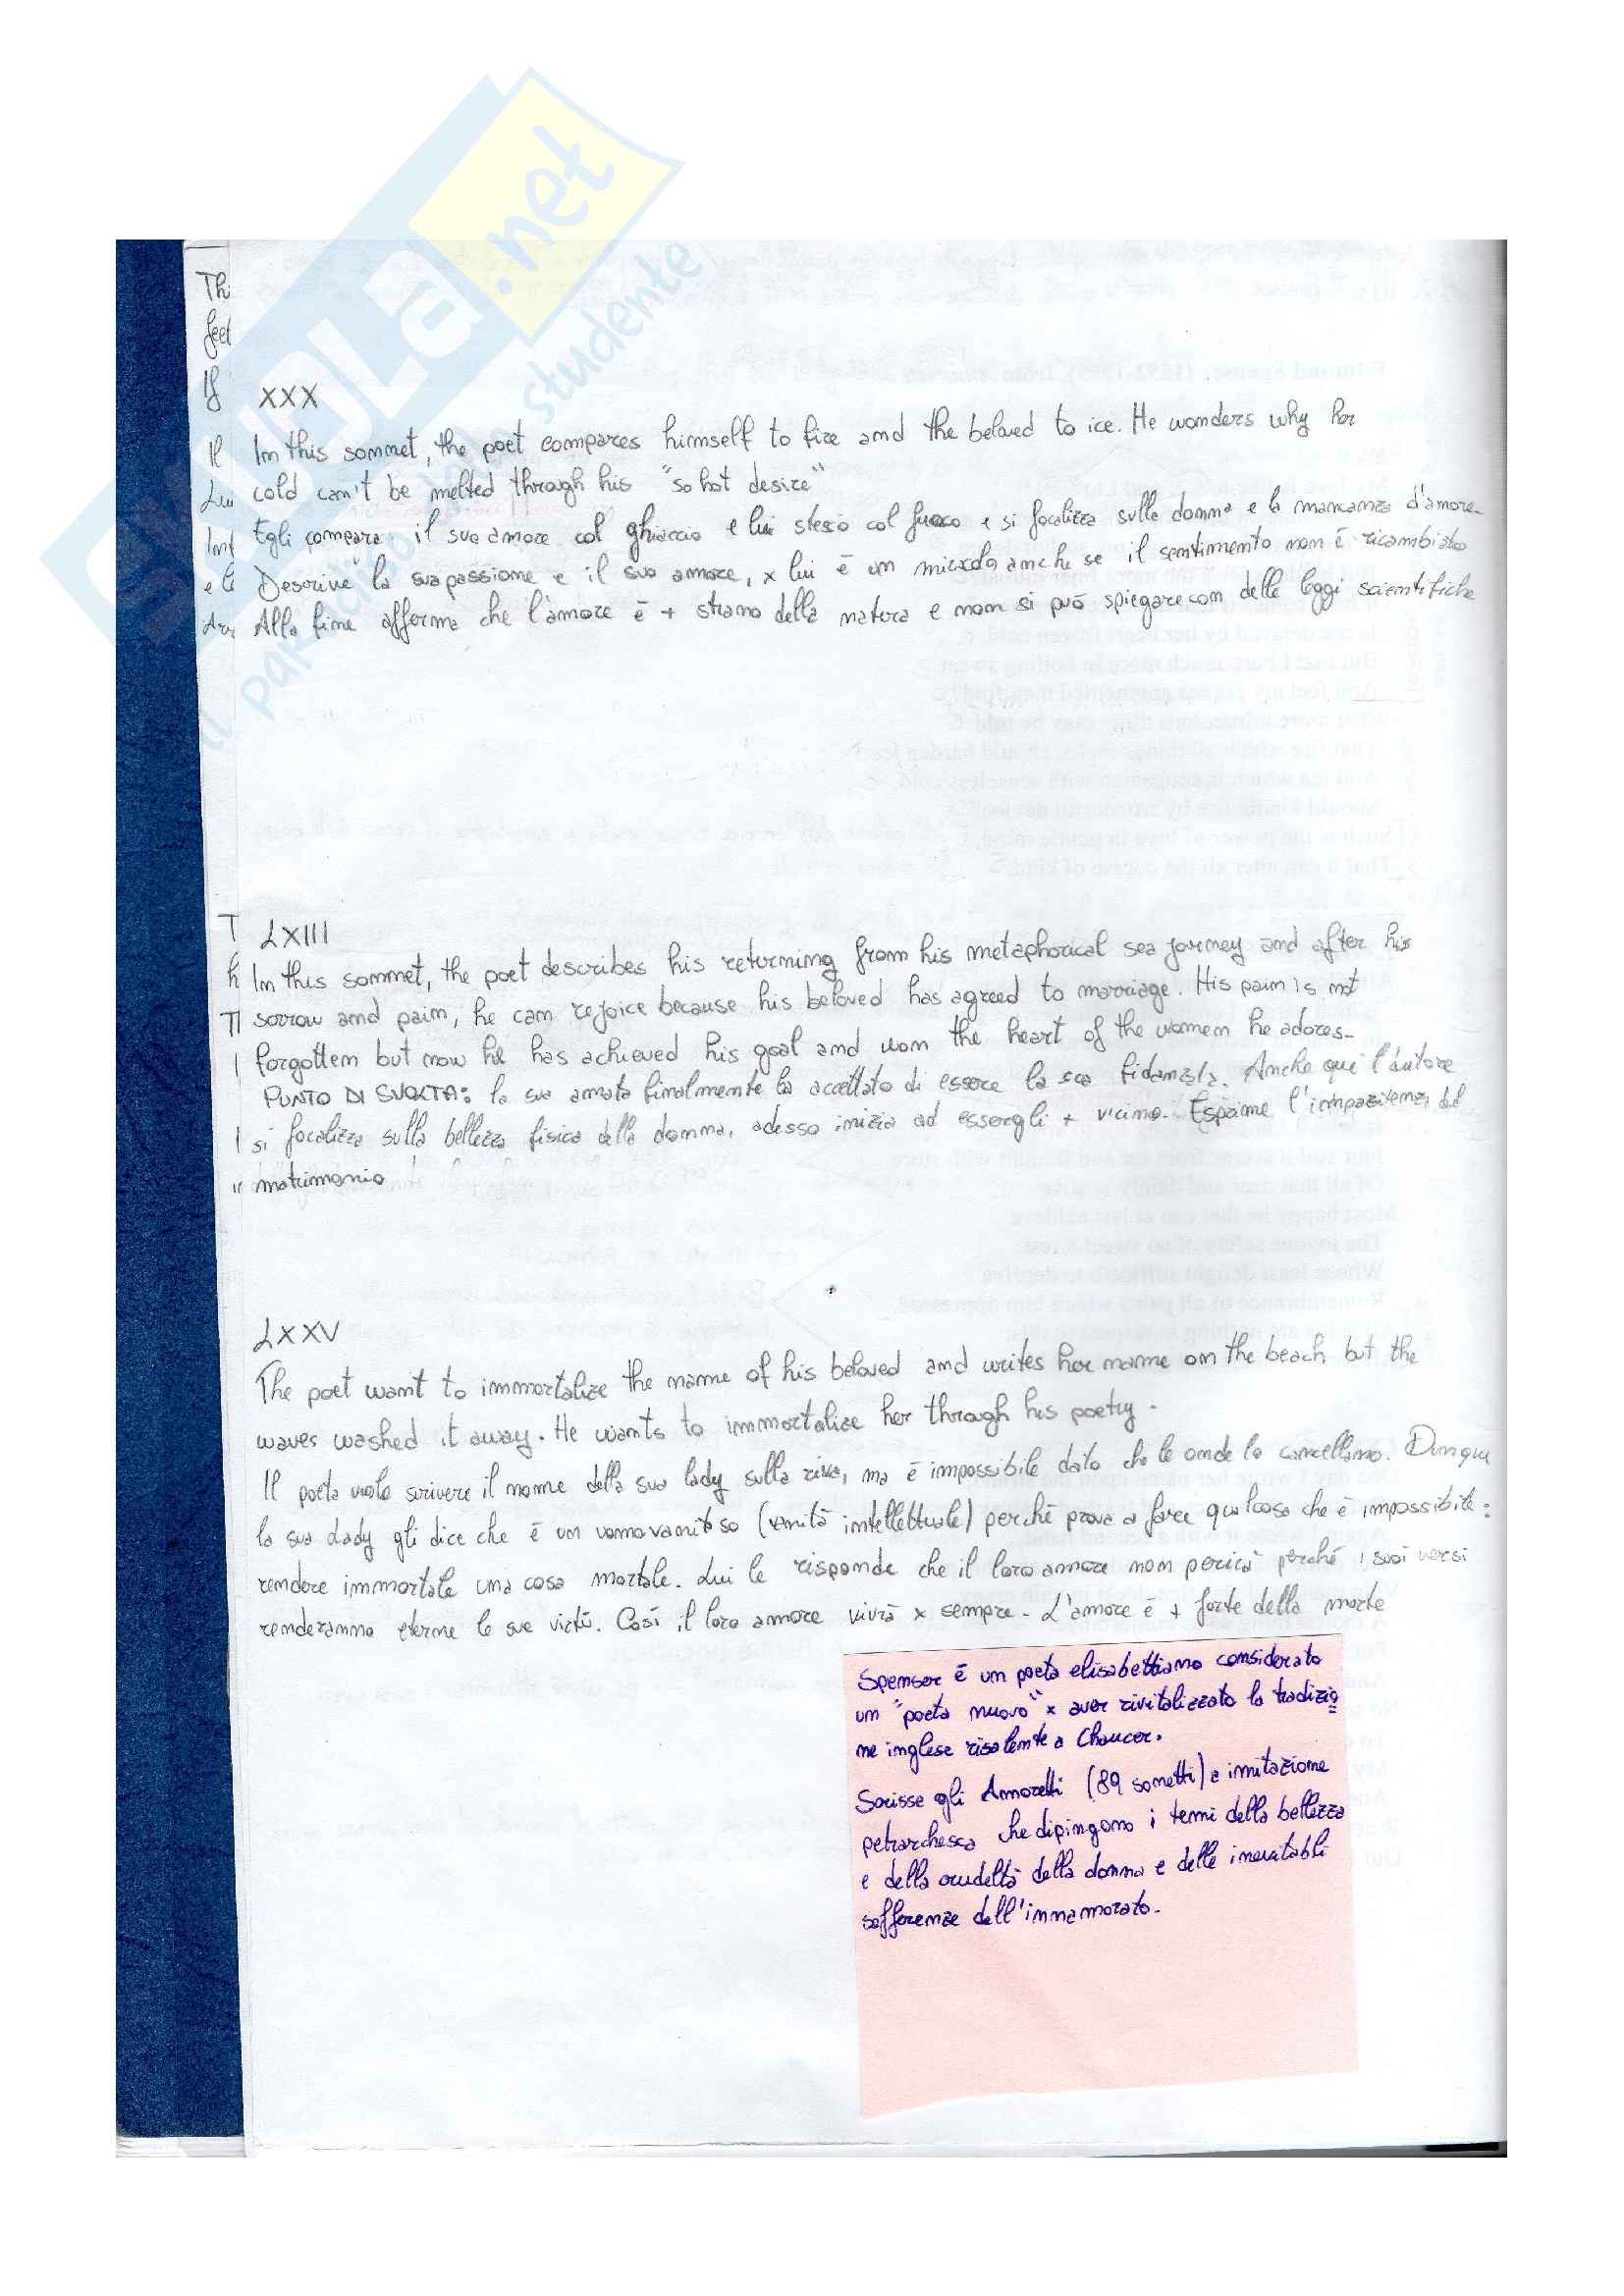 SKUOLA.net
il paradiso dello studente
Th
feel
If
XXX
Il In this sonnet, the poet compares himself to fire and the beloved to ice. He wonders why her
Lui cold can't be melted through his "so hot desire"
Int Egli compara il suo amore col ghiaccio e lui stesso col fuoco e si focalizza sulla donna e la mancanza d'amore.
e le Descrive la sua passione e il suo amore, x lui è un miracolo anche se il sentimento non è ricambiato
Alla fine afferma che l'amore è + strano della natura e non si può spiegare con delle leggi scientifiche
T LXIII
h In this sonnet, the poet describes his returning from his metaphorical sea journey and after his
sorrow and pain, he can rejoice because his beloved has agreed to marriage. His pain is not
forgotten but now he has achieved his goal and won the heart of the women he adores-
PUNTO DI SVOLTA: la sua amata finalmente ha accettato di essere la sua fidanzata. Anche qui l'autore
si focalizza sulla bellezza fisica della donna, adesso inizia ad essergli + vicino. Esprime l'impazienza del
matrimonio
LXXV
The poet want to immortalize the name of his beloved and writes her name on the beach but the
waves washed it away. He wants to immortalize her through his poetry.
Il poeta vuole scrivere il nome della sua lady sulla riva, ma è impossibile dato che le onde lo cancellano. Dunque
la sua Lady gli dice che è un uomo vanitoso (vanità intellettuale) perché prova a fare qualcosa che è impossibile:
rendere immortale una cosa mortale. Lui le risponde che il loro amore non perirà perché i suoi versi
renderanno eterne le sue virtù. Così il loro amore vivrà x sempre. L'amore è + forte della morte
Spenser è un poeta elisabettiano considerato
un "poeta nuovo" x aver rivitalizzato la tradizio
ne inglese risalente a Chaucer.
Scrisse gli Amoretti (89 sonetti) a imitazione
petrarchesca che dipingono i temi della bellezza
e della crudeltà della donna e delle inevitabli
sofferenze dell'innamorato.